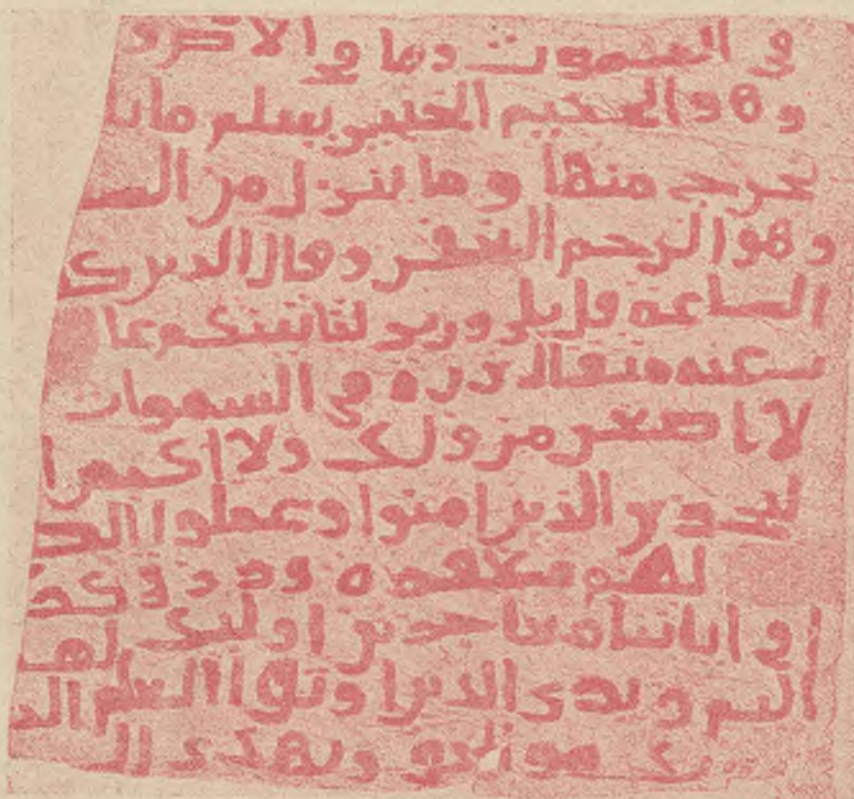 في السموت وما في الارض و
وهو الحكيم الخبير يعلم ما يا
يخرج منها وما ينزل من السـ
وهو الرحيم الغفور وقال الذين كـ
الساعه قل بلى وربي لتاتينكم عا
عنه مثقال ذره في السموات
لا اصغر من ذلك ولا اكبر ا
ليجزي الذين امنوا وعملوا الصـ
لهم مغفره ورزق كر
في اياتنا معاجزين اولئك لهم
اليم ويرى الذين اوتوا العلم الذ
ربك هو الحق ويهدي الى